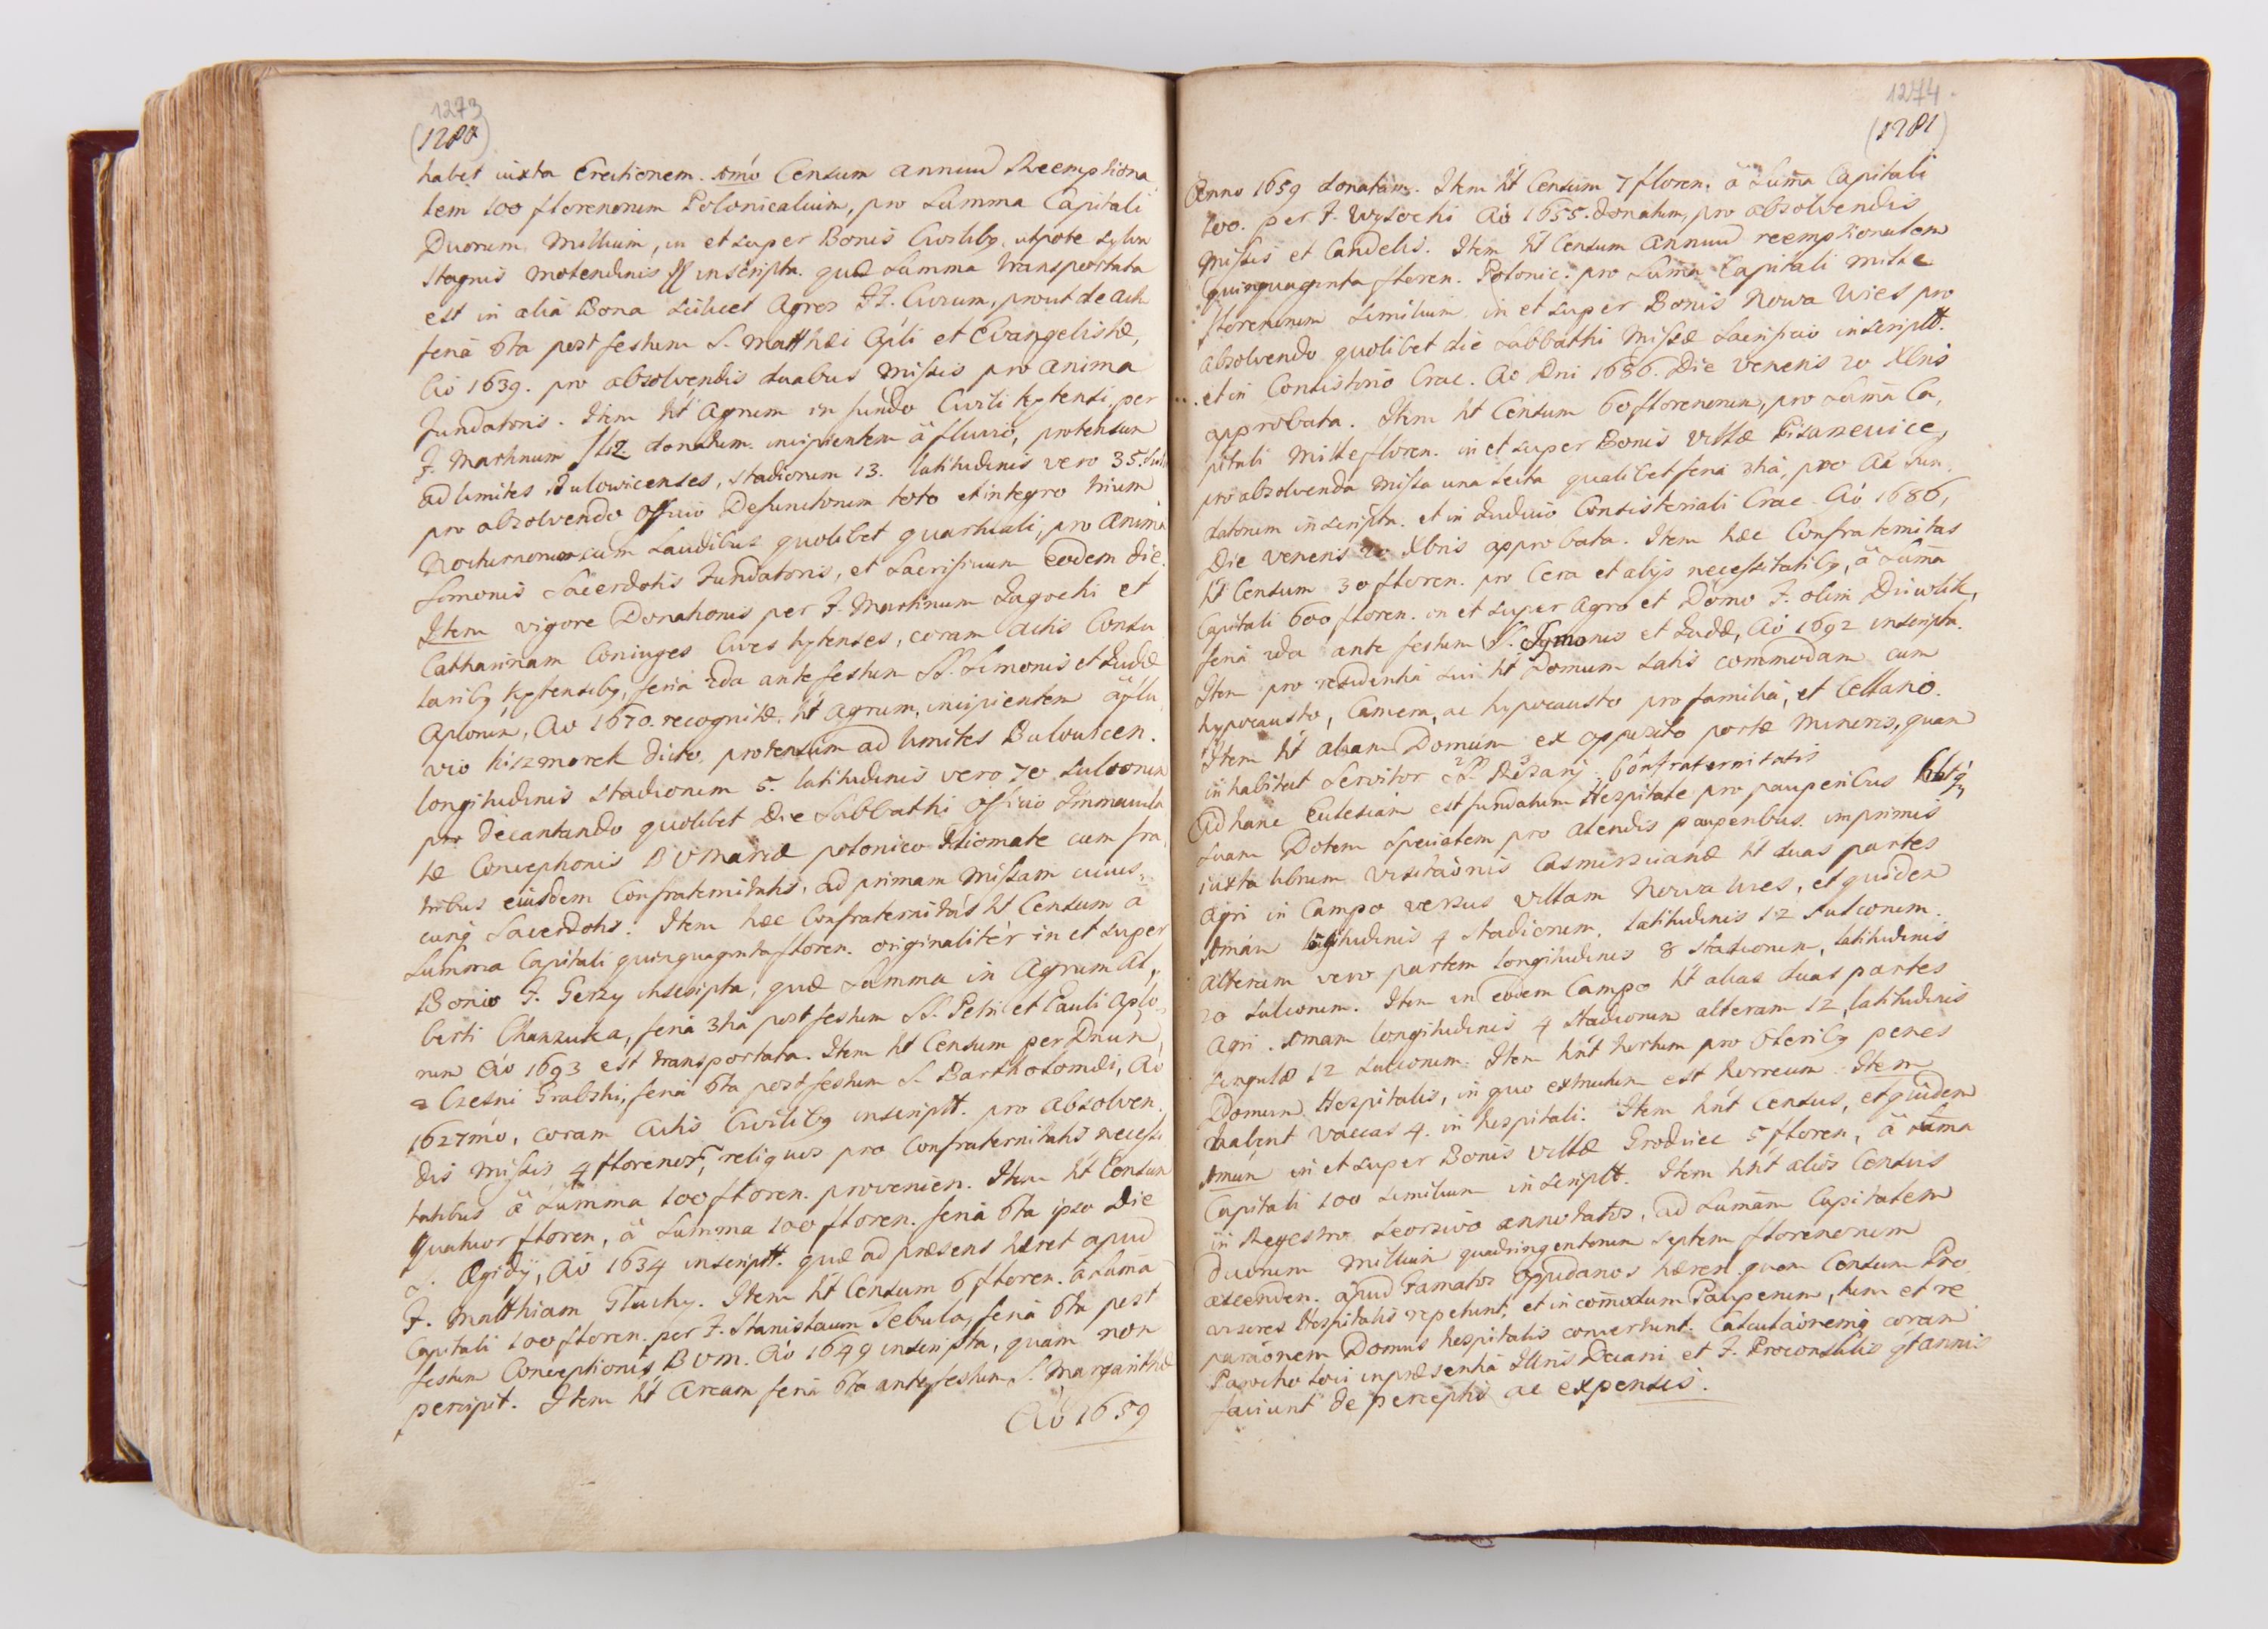 1273
(1280)
habet iuxta Erectionem. 1mo Censum annuũ Reemptiona
lem 100 florenorum Polonicalium, pro Summa Capitali
Duorum Millium, in et super Bonis Civilibq, utpote
stagnis molendinis inscripta. quæ Summa transportata
est in alia Bona scilicet Agros FF. Civium, prout de actu
feria 6ta post festum S. Matthæi Apli et Evangelistæ,
Aõ 1639. pro absolvendis duabus Missis pro anima
Fundatoris. Item ht Agrum in fundo Civili Kętensi, per
F. Martinum donatum. incipientem à fluvio, protensum
ad limites Bulowicenses, stadiorum 13. latitudinis vero 35.
pro absolvendo Officio Defunctorum toto et integro trium
Nocturnorum cum Laudibus quolibet quartuali, pro anima
Simonis Sacerdotis Fundatoris, et Sacrificium Eodem die.
Item vigore Donationis per F. Martinum et
Catharinam Coniuges Cives Kętenses, coram actis Consu
laribq Kętensibq, feria 2da ante festum SS. Simonis et Judæ
Aplorum, Ao 1670. recognitæ. ht Agrum, incipientem à flu
vio kiszmorek dicto, protensum ad limites Bulovicen.
longitudinis stadiorum 5. latitudinis vero 70 sulcorum
pro decantando quolibet Die Sabbathi Officio Immacula
tæ Conceptionis B V Mariæ polonico Idiomate cum fra
tribus eiusdem Confraternitatis, ad primam Missam cuius,,
cunq Sacerdotis. Item hæc Confraternitas ht Censum a
Summa Capitali quinquaginta floren. originaliter in et super
Bonis F. Gerzy inscripta, quæ Summa in Agrum Al,,
berti Chanzuka, feria 3tia post festum SS. Petri et Pauli Aplo,
rum Aõ 1693 est transportata. Item ht Censum per Dnum
Czesni Grabski, feria 6ta post festum S. Bartholomæi, Aõ
1627mo, coram Actis Civilibq inscriptt. pro absolven
dis Missis 4 florenos, reliquos pro Confraternitatis necessi
tatibus à Summa 100 floren. provenien. Item ht Censum
quatuor floren, à Summa 100 floren. feria 6ta ipso Die
S. Ægidÿ, Aõ 1634 inscriptt. quæ ad præsens hæret apud
F. Matthiam Głuchy. Item ht Censum 6 floren. à Sum̃a
Capitali 100 floren. per F. Stanislaum Sebula, feria 6ta post
festum Conceptionis B V M. Aõ 1649 inscripta, quam non
percipit. Item ht Aream feria 6ta ante festum S. Margarithæ
Aõ 1659
1274
(1281)
Anno 1659 donatam. Item ht Censum 7 floren. à Sum̃a Capitali
200. per F. Wysocki Aõ 1655. donatum, pro absolvendis
Missis et Candelis. Item ht Censum annuũ reemptionalem
quinquaginta floren. Polonic. pro Sum̃a Capitali mille
florenorum similium in et super Bonis Nowa Wies pro
absolvendo quolibet die Sabbathi Missæ Sacrificio inscriptt.
et in Consistorio Crac. Aõ Dni 1686. Die Veneris 20 Xbris
approbata. Item ht Censum 60 florenorum, pro Sum̃a Ca,
pitali Mille floren. in et super Bonis Villæ Pisarzewice,
pro absolvenda Missa una lecta qualibet feria 3tia, pro Aa Fun
datorum inscripta. et in Judicio Consistoriali Crac. Aõ 1686,
Die Veneris 20 Xbris approbata. Item hæc Confraternitas
ht Censum 30 floren. pro Cera et alijs necessitatibq, à Sum̃a
Capitali 600 floren. in et super Agro et Domo F. olim
feria 2da ante festum S. Symonis et Judæ, Aõ 1692 inscripta.
Item pro residentia sui ht Domum satis commodam cum
hypocausto, Camera, ac hypocausto pro familia, et Cellario.
Item ht aliam Domum ex opposito portæ Minoris, quam
inhabitat Servitor SS. Rosarij Confraternitatis
Ad hanc Ecclesiam est fundatum Hospitale pro pauperibus
suam Dotem specialem pro alendis pauperibus. imprimis
iuxta librum Visitãonis Casimirscianæ ht duas partes
Agri in Campo versus Villam Nowa Wies, et quidem
1mam longitudinis 4 stadiorum, latitudinis 12 sulcorum.
Alteram vero partem longitudinis 8 stadiorum, latitudinis
20 sulcorum. Item in eodem Campo ht alias duas partes
Agri. 1mam longitudinis 4 stadiorum alteram 12, latitudinis
singulæ 12 sulcorum. Item hnt hortum pro Oleribq penes
Domum Hospitalis, in quo extructum est horreum. Item
habent vaccas 4. in hospitali. Item hnt Census, et quidem
1mum in et super Bonis Villæ Grodziec 5 floren, à sum̃a
Capitali 100 similium inscriptt. Item hnt alios Census
in Regestro seorsivo annotatos, ad Sum̃am Capitalem
duorum millium quadringentorum septem florenorum
ascenden. apud Famatos Oppidanos hæren. quem Censum Pro
visores Hospitalis repetunt, et in com̃odum Pauperum, tum et re
parãonem Domus hospitalis convertunt. Calculãonemq coram
Parocho loci in præsentia Illris Decani et F. Proconsulis qtannis
faciunt de perceptis ac expensis.